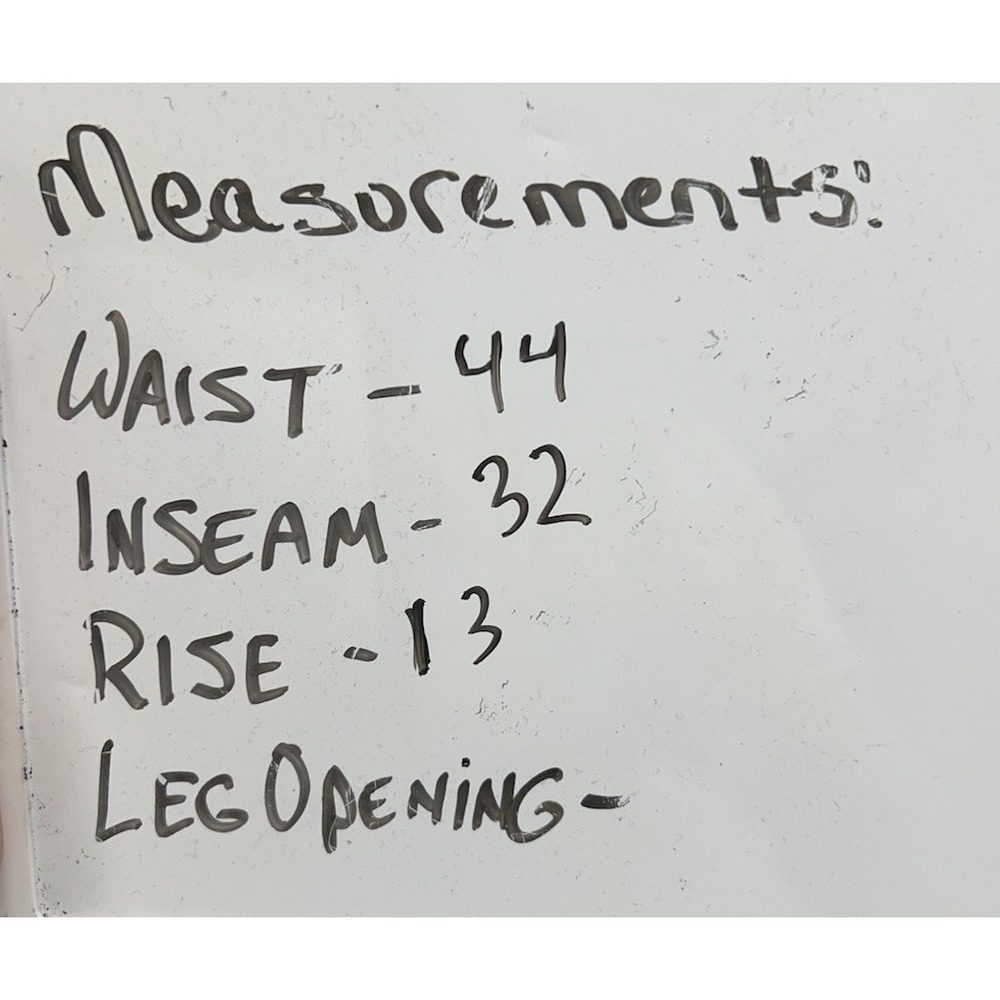 Measurements:
WAIST - 44
INSEAM - 32
RISE - 13
LEG OPENING -